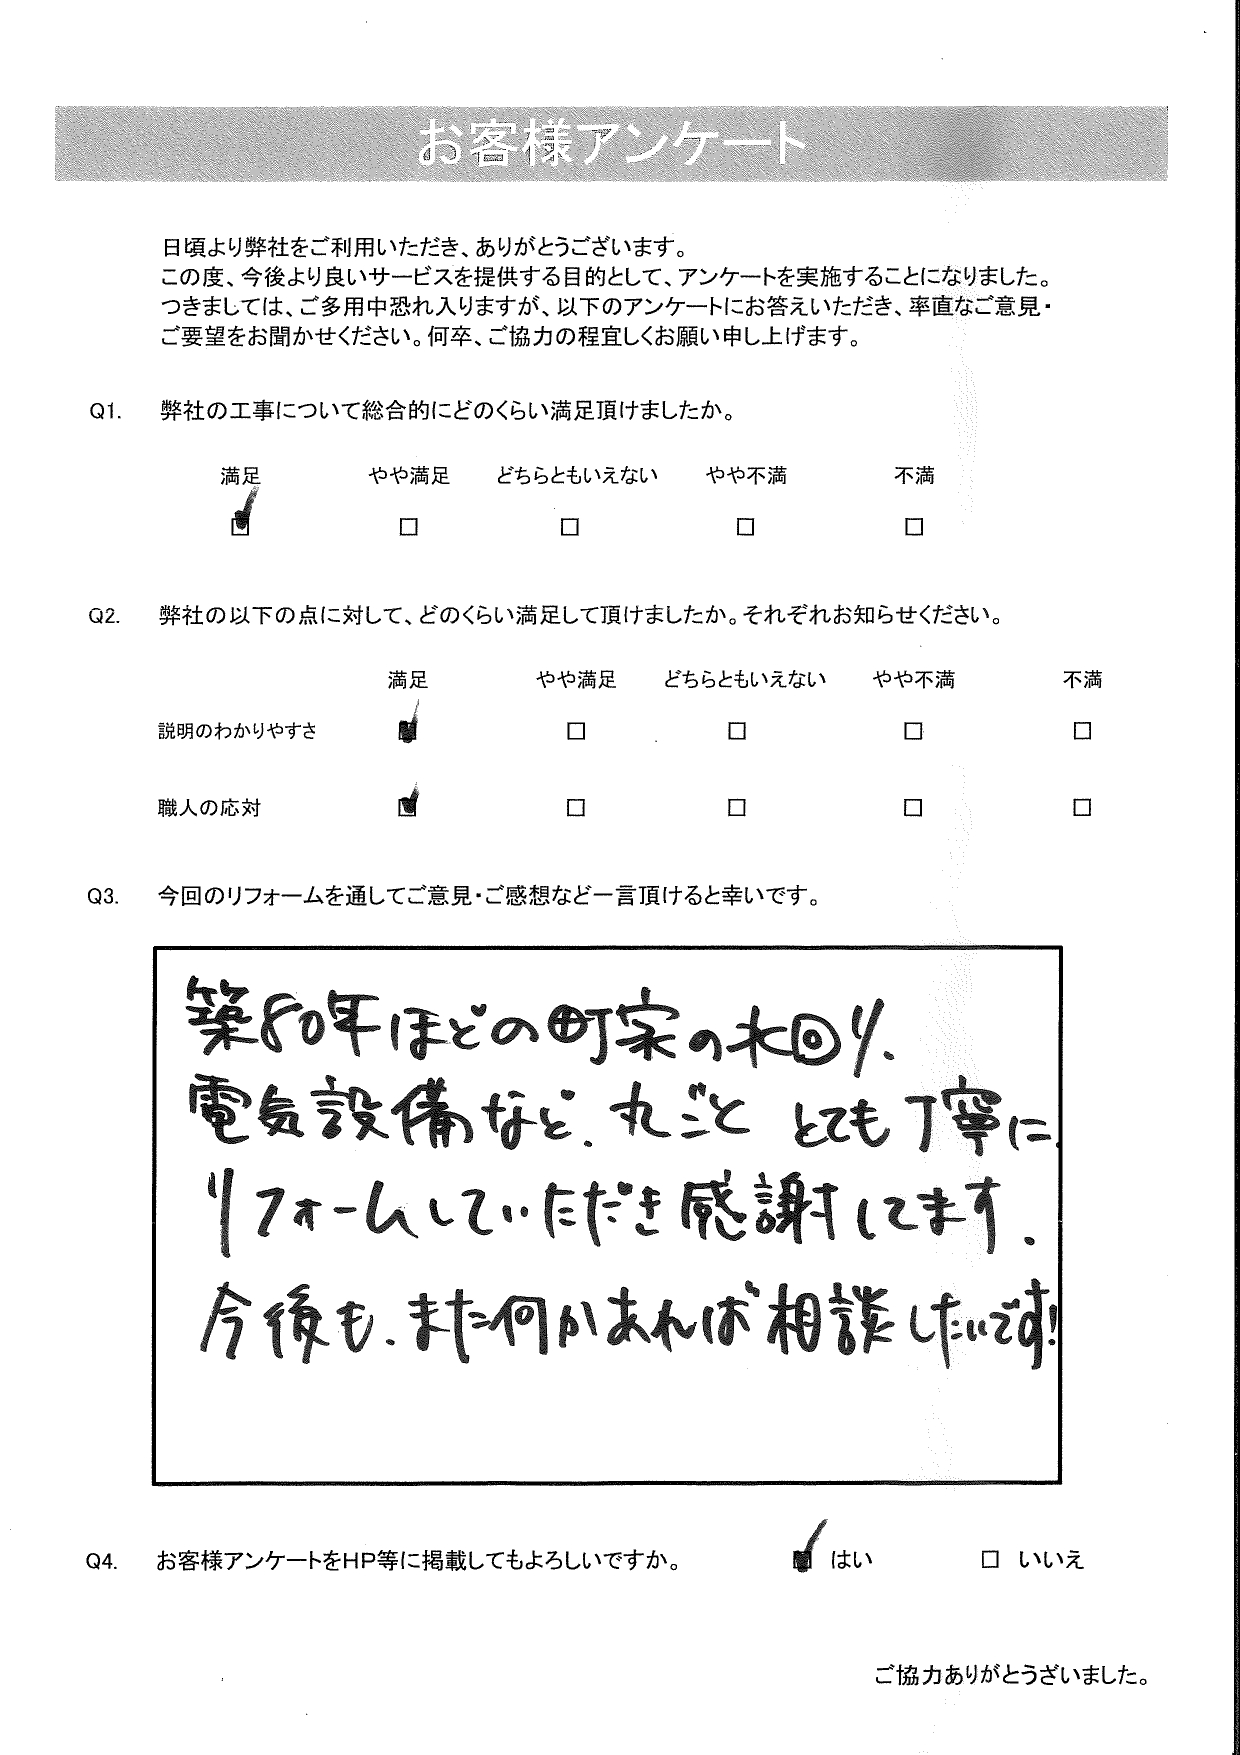 お客様アンケート
日頃より弊社をご利用いただき、ありがとうございます。
この度、今後より良いサービスを提供する目的として、アンケートを実施することになりました。
つきましては、ご多用中恐れ入りますが、以下のアンケートにお答えいただき、率直なご意見・
ご要望をお聞かせください。何卒、ご協力の程宜しくお願い申し上げます。
Q1. 弊社の工事について総合的にどのくらい満足頂けましたか。
満足 やや満足 どちらともいえない やや不満 不満
Q2. 弊社の以下の点に対して、どのくらい満足して頂けましたか。それぞれお知らせください。
満足 やや満足 どちらともいえない やや不満 不満
説明のわかりやすさ
職人の応対
Q3. 今回のリフォームを通してご意見・ご感想など一言頂けると幸いです。
築80年ほどの町家の水回り、
電気設備など、丸ごと とても丁寧に
リフォームしていただき感謝してます.
今後も、また何かあれば相談したいです!
Q4. お客様アンケートをHP等に掲載してもよろしいですか。 はい いいえ
ご協力ありがとうざいました。